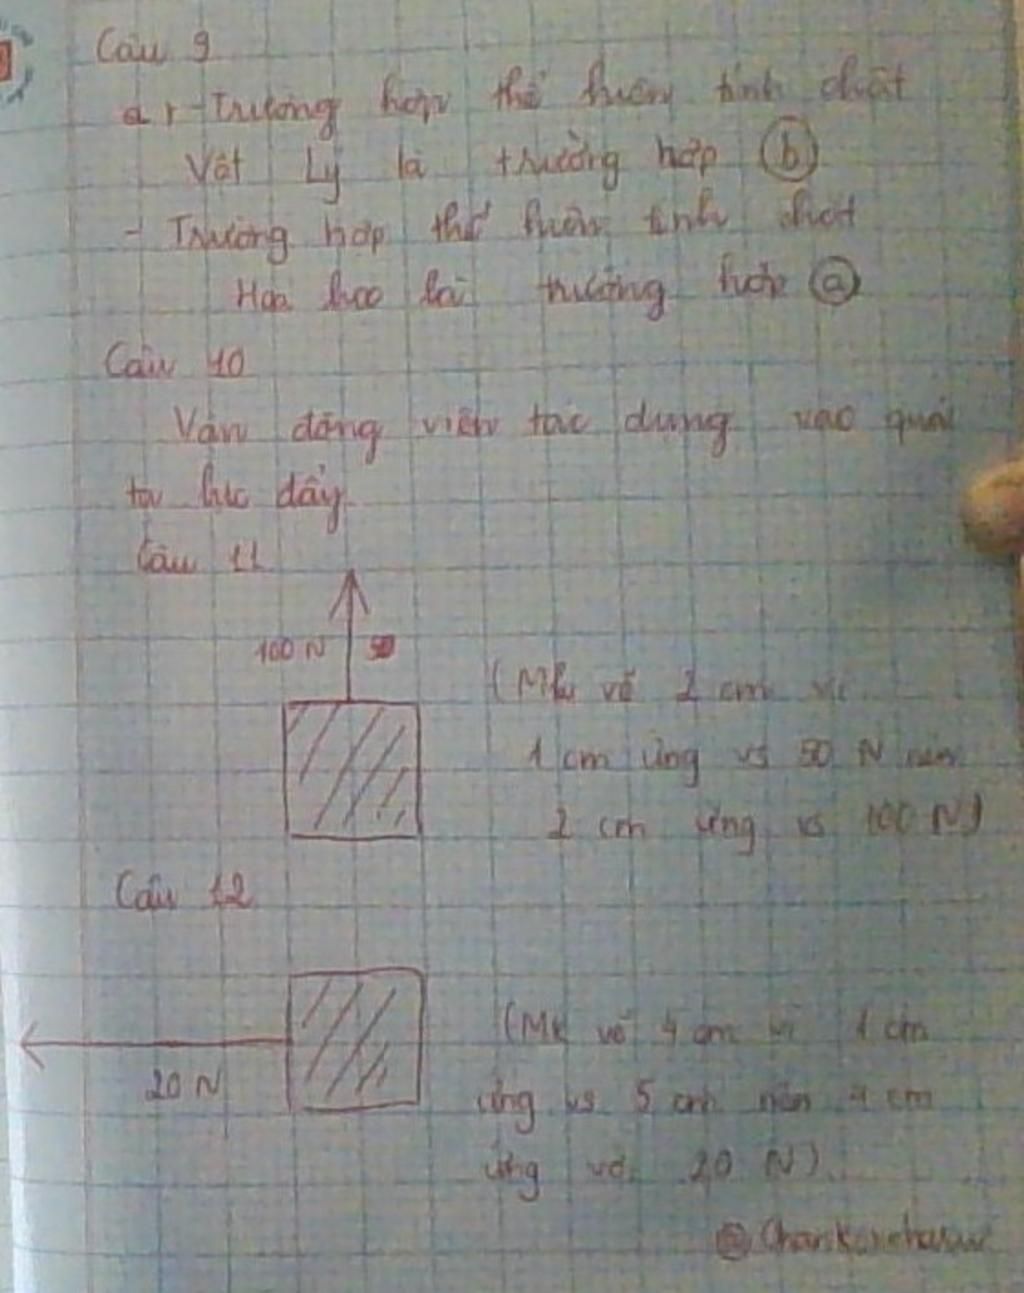 Câu 9
a, - Trường hợp thể hiện tính chất
Vật Lý là trường hợp (b)
- Trường hợp thể hiện tính chất
Hóa học là trường hợp (a)
Câu 10
Vận động viên tác dụng vào quả
tạ lực đẩy
Câu 11
100 N
(Mk vẽ 2 cm vì
1 cm ứng vs 50 N nên
2 cm ứng vs 100 N)
Câu 12
20 N
(Mk vẽ 4 cm vì 1 cm
ứng vs 5 cm nên 4 cm
ứng với 20 N)